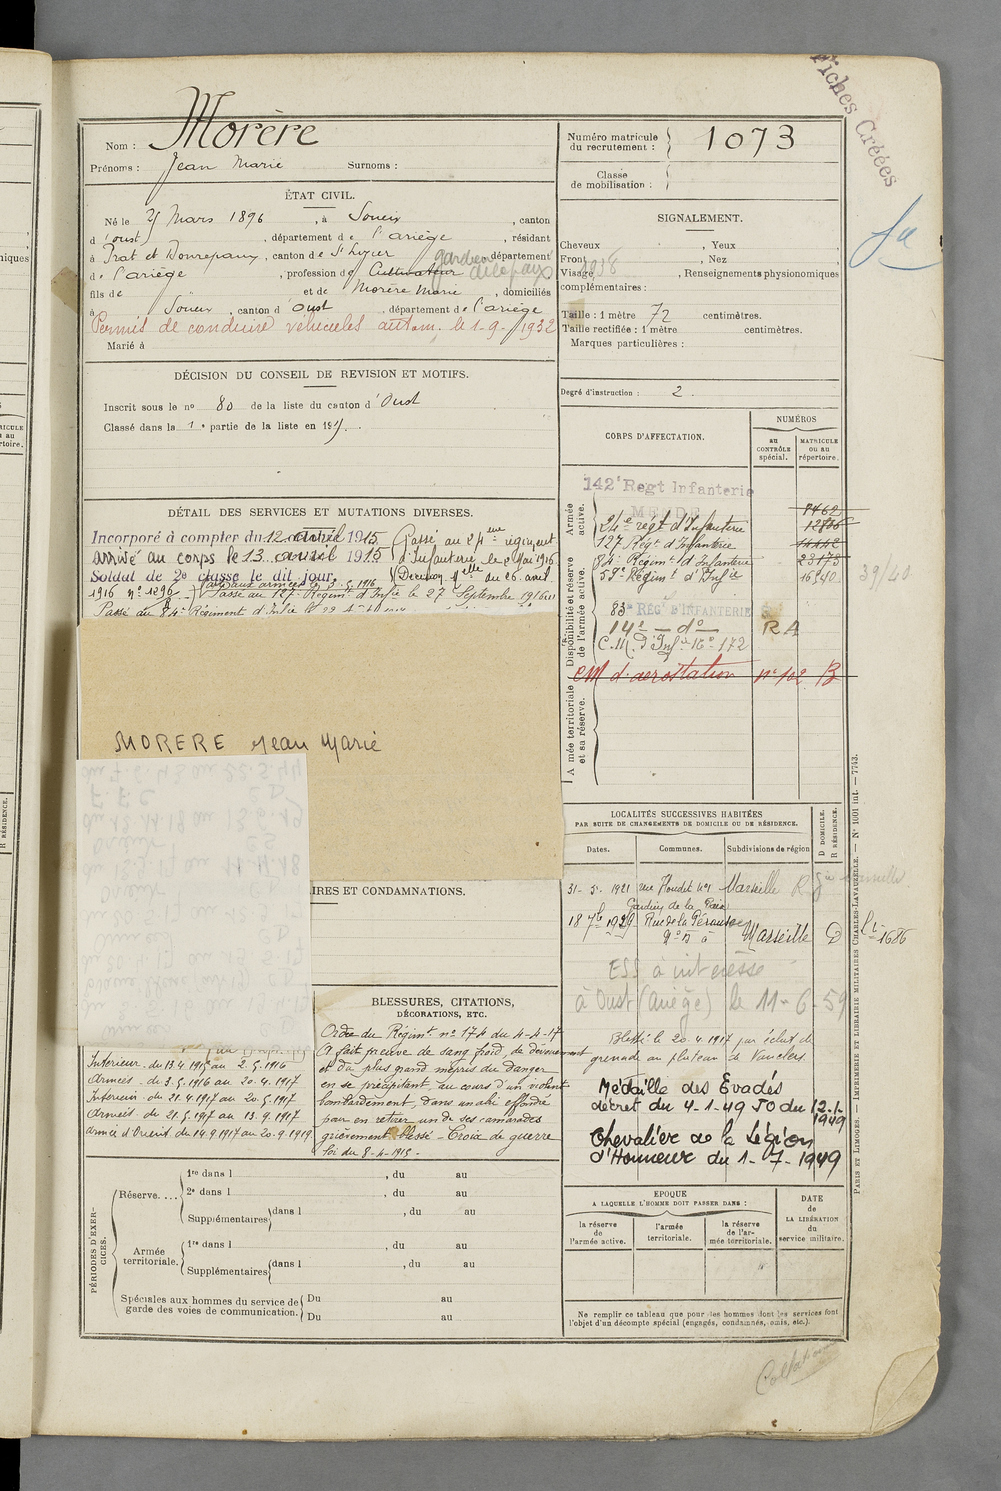 Fiches Créées
Nom : Morère
Prénoms : Jean Marie Surnoms :
Numéro matricule du recrutement : 1073
Classe de mobilisation :
ÉTAT CIVIL.
Né le 25 Mars 1896, à Soueix, canton
d'oust, département de l'ariège, résidant
à Prat et Bonrepaux, canton de St Lizier, département
de l'ariège, profession de Cultivateur gardien de la paix
fils de et de Morère Marie, domiciliés
à Soueix, canton d'Oust, département de l'ariège
Permis de conduire véhicules autom. le 1-9-1932
Marié à
SIGNALEMENT.
Cheveux , Yeux
Front , Nez
Visage , Renseignements physionomiques
complémentaires :
Taille : 1 mètre 72 centimètres.
Taille rectifiée : 1 mètre centimètres.
Marques particulières :
Degré d'instruction : 2
DÉCISION DU CONSEIL DE REVISION ET MOTIFS.
Inscrit sous le no 80 de la liste du canton d'Oust
Classé dans la 1e partie de la liste en 1915.
CORPS D'AFFECTATION.
NUMÉROS
au CONTRÔLE spécial.
MATRICULE ou au répertoire.
Armée active.
142e Regt Infanterie
MENDE
24e regt d'Infanterie
127 Régt d'Infanterie
84e Régimt d'Infanterie
58e Régimt d'Infie
Disponibilité et réserve de l'armée active.
83e REGt D'INFANTERIE
14e — do — R A
C.M. D'Infie 16e 172
Armée territoriale et sa réserve.
CM d'aerostation no 102 B
39/40
DÉTAIL DES SERVICES ET MUTATIONS DIVERSES.
Incorporé à compter du 12 avril 1915
arrivé au corps le 13 avril 1915
Soldat de 2e classe le dit jour.
Passé au 24eme régiment
d'Infanterie le 2 Mai 1916
Décision Melle du 26 avril
1916 no 1296. Passé aux armées le 3.5.1916
Passé au 127e Régimt d'Infie le 27 Septembre 1916
Passé au 84e Régiment d'Infie le
MORERE Jean Marie
LOCALITÉS SUCCESSIVES HABITÉES
PAR SUITE DE CHANGEMENTS DE DOMICILE OU DE RÉSIDENCE.
Dates. Communes. Subdivisions de région
D DOMICILE. R RÉSIDENCE.
31-5-1921 rue Houdet no1 Marseille R
Gardien de la Paix
18 7b 1929 Rue de la Pérouse Marseille D
ESS à intéressé
à Oust (Ariège) le 11-6-59
Blessé le 20.4.1917 par éclat de
grenade au plateau de Vauclerc.
Médaille des Evadés
décret du 4-1-49 JO du 12-1-1949
Chevalier de la Légion
d'Honneur du 1-7-1949
IRES ET CONDAMNATIONS.
BLESSURES, CITATIONS,
DÉCORATIONS, ETC.
Ordre du Régimt no 174 du 4-4-17
A fait preuve de sang froid, de dévouement
et du plus grand mépris du danger
en se précipitant, au cours d'un violent
bombardement, dans un abri effondré
pour en retirer un de ses camarades
grièvement blessé - Croix de guerre
loi du 8-4-1915 -
Intérieur du 13.4.1915 au 2.5.1916
Armées - du 3.5.1916 au 20.4.1917
Intérieur - du 21.4.1917 au 20.5.1917
Armées du 21.5.1917 au 13.9.1917
Armée d'Orient du 14.9.1917 au 20.9.1919
PÉRIODES D'EXERCICES.
Réserve....
1re dans l , du au
2e dans l , du au
Supplémentaires dans l , du au
Armée territoriale.
1re dans l , du au
Supplémentaires dans l , du au
Spéciales aux hommes du service de garde des voies de communication.
Du au
Du au
EPOQUE
A LAQUELLE L'HOMME DOIT PASSER DANS :
la réserve de l'armée active.
l'armée territoriale.
la réserve de l'armée territoriale.
DATE DE LA LIBÉRATION du service militaire.
Ne remplir ce tableau que pour les hommes dont les services font
l'objet d'un décompte spécial (engagés, condamnés, omis, etc.).
PARIS ET LIMOGES. — IMPRIMERIE ET LIBRAIRIE MILITAIRES CHARLES-LAVAUZELLE. — No 1001 int. — 7743.